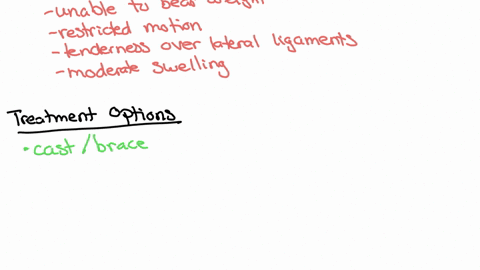 -unable to bear weight
-restrided motion
-tenderness over lateral ligaments
-moderate swelling
Treatment Options
• cast/brace